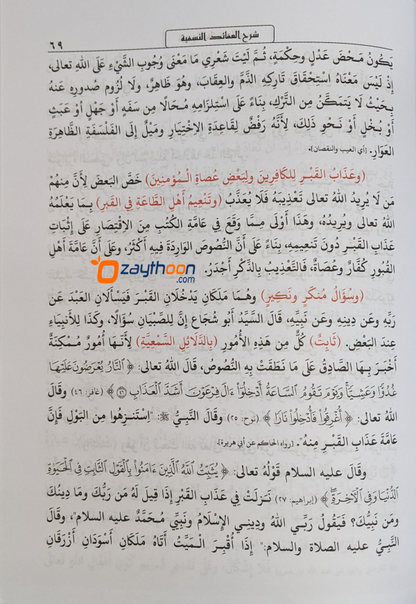 شرح العقائد النسفية
٦٩
يَكُونُ مَحْضَ عَدْلٍ وَحِكْمَةٍ، ثُمَّ لَيْتَ شَعْرِي مَا مَعْنَى وُجُوبِ الشَّيْءِ عَلَى اللهِ تعالى،
إِذْ لَيْسَ مَعْنَاهُ اسْتِحْقَاقَ تَارِكِهِ الذَّمَّ وَالعِقَابَ، وَهُوَ ظَاهِرٌ، وَلَا لُزُومَ صُدورِهِ عَنهُ
بِحَيْثُ لَا يَتَمَكَّنُ مِن التَّرْكِ، بِنَاءً عَلَى اسْتِلزَامِهِ مُحَالًا مِن سَفَهٍ أَوْ جَهْلٍ أَوْ عَبَثٍ
أَوْ بُخْلٍ أَوْ نَحْوِ ذَلِكَ، لِأَنَّهُ رَفْضٌ لِقَاعِدَةِ الِاخْتِيَارِ وَمَيْلٌ إِلَى الفَلْسَفَةِ الظَّاهِرَةِ
العَوَارِ. [أي العيب والنقصان].
(وَعَذَابُ القَبْرِ لِلكَافِرِينَ وَلِبَعْضِ عُصَاةِ الْمُؤْمِنِينَ) خَصَّ البَعْضَ لِأَنَّ مِنْهُمْ
مَن لَا يُرِيدُ اللهُ تعالى تَعْذِيبَهُ فَلَا يُعَذَّبُ (وَتَنْعِيمُ أَهْلِ الطَّاعَةِ فِي القَبْرِ) بِمَا يَعْلَمُهُ
اللهُ تعالى وَيُرِيدُهُ، وَهَذَا أَوْلَى مِمَّا وَقَعَ فِي عَامَّةِ الكُتُبِ مِنَ الِاقْتِصَارِ عَلَى إِثْبَاتِ
عَذَابِ القَبْرِ دُونَ تَنعِيمِهِ، بِنَاءً عَلَى أَنَّ النُّصُوصَ الوَارِدَةَ فِيهِ أَكْثَرُ، وَعَلَى أَنَّ عَامَّةَ أَهْلِ
القُبُورِ كُفَّارٌ وَعُصَاةٌ، فَالتَّعْذِيبُ بِالذِّكْرِ أَجْدَرُ.
Ozaythoon
.com
(وَسُؤَالُ مُنكَرٍ وَنَكِيرٍ) وَهُمَا مَلَكَانِ يَدْخُلَانِ القَبْرَ فَيَسْأَلَانِ العَبْدَ عَن
رَبِّهِ وَعَن دِينِهِ وَعَن نَبِيِّهِ، قَالَ السَّيِّدُ أَبُو شُجَاعٍ إِنَّ لِلصِّبْيَانِ سُؤَالًا، وَكَذَا لِلأَنبِيَاءِ
عِندَ البَعْضِ. (ثَابِتٌ) كُلٌّ مِن هَذِهِ الأُمُورِ (بِالدَّلَائِلِ السَّمْعِيَّةِ) لِأَنَّهَا أُمُورٌ مُمْكِنَةٌ
أَخْبَرَ بِهَا الصَّادِقُ عَلَى مَا نَطَقَتْ بِهِ النُّصُوصُ، قَالَ اللهُ تعالى: ﴿ النَّارُ يُعْرَضُونَ عَلَيْهَا
غُدُوًّا وَعَشِيًّا وَيَوْمَ تَقُومُ السَّاعَةُ أَدْخِلُوا آلَ فِرْعَوْنَ أَشَدَّ الْعَذَابِ ﴾ (غافر: ٤٦) وَقَالَ
اللهُ تعالى: ﴿ أُغْرِقُوا فَأُدْخِلُوا نَارًا ﴾ (نوح: ٢٥) وَقَالَ النَّبِيُّ ﷺ: "اسْتَنزِهُوا مِنَ البَوْلِ فَإِنَّ
عَامَّةَ عَذَابِ القَبْرِ مِنهُ". [رواه الحاكم عن أبي هريرة].
وَقَالَ عليه السلام قَوْلُهُ تعالى: ﴿ يُثَبِّتُ اللَّهُ الَّذِينَ ءَامَنُوا بِالْقَوْلِ الثَّابِتِ فِي الْحَيَوٰةِ
الدُّنْيَا وَفِي الْآخِرَةِ ﴾ (إبراهيم: ٢٧) نَزَلَتْ فِي عَذَابِ القَبْرِ إِذَا قِيلَ لَهُ مَن رَبُّكَ وَمَا دِينُكَ
وَمَن نَبِيُّكَ؟ فَيَقُولُ رَبِّيَ اللهُ وَدِينِيَ الإِسْلَامُ وَنَبِيِّي مُحَمَّدٌ عليه السلام"، وَقَالَ
النَّبِيُّ عليه الصلاة والسلام: "إِذَا أُقْبِرَ الْمَيِّتُ أَتَاهُ مَلَكَانِ أَسْوَدَانِ أَزْرَقَانِ